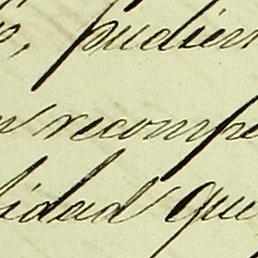 , pudien
n recompe
lidad que